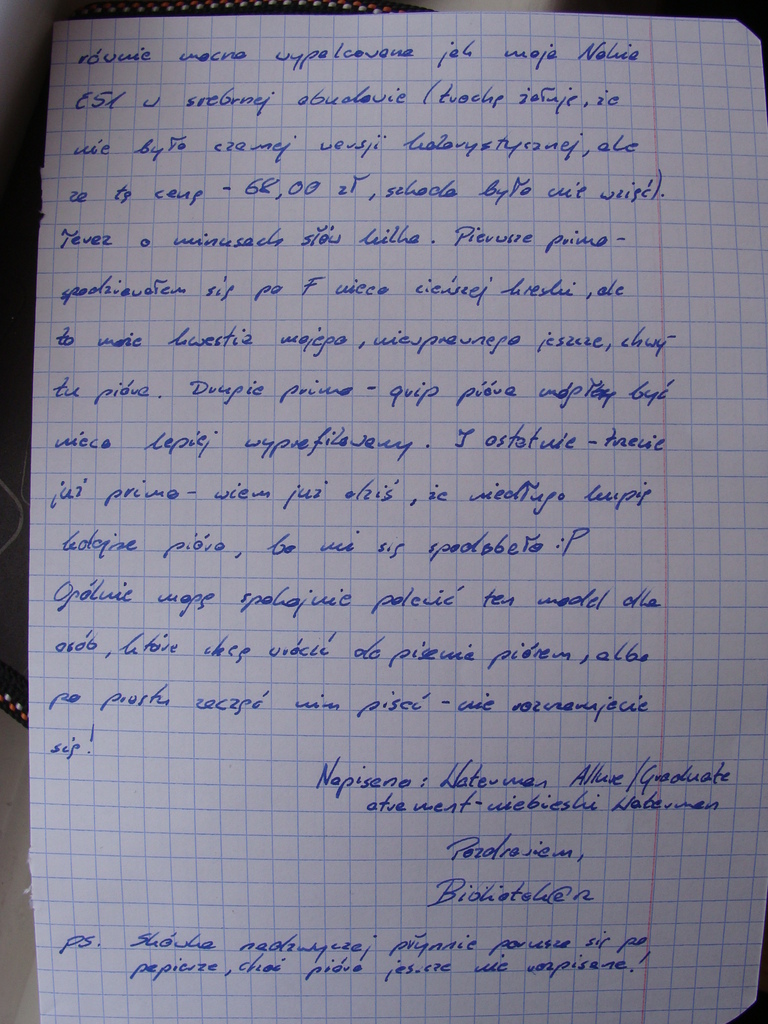 równie mocno wypalcowana jak moja Nokia
E51 w srebrnej obudowie (trochę żałuję, że
nie było czarnej wersji kolorystycznej, ale
za tę cenę - 68,00 zł, szkoda było nie wziąć).
Teraz o minusach słów kilka. Pierwsze primo -
spodziewałem się po F nieco cieńszej kreski, ale
to może kwestia mojego, niewprawnego jeszcze, chwy-
tu pióra. Drugie primo - grip pióra mógłby być
nieco lepiej wyprofilowany. I ostatnie - trzecie
już primo - wiem już dziś, że niedługo kupię
kolejne pióro, bo mi się spodobało :P
Ogólnie mogę spokojnie polecić ten model dla
osób, które chcą wrócić do pisania piórem, albo
po prostu zacząć nim pisać - nie rozczarujecie
się!
Napisano: Waterman Allure/Graduate
atrament - niebieski Waterman
Pozdrawiam,
Bibliotek@rz
ps. Skówka nadzwyczaj płynnie porusza się po
papierze, choć pióro jeszcze nie rozpisane!